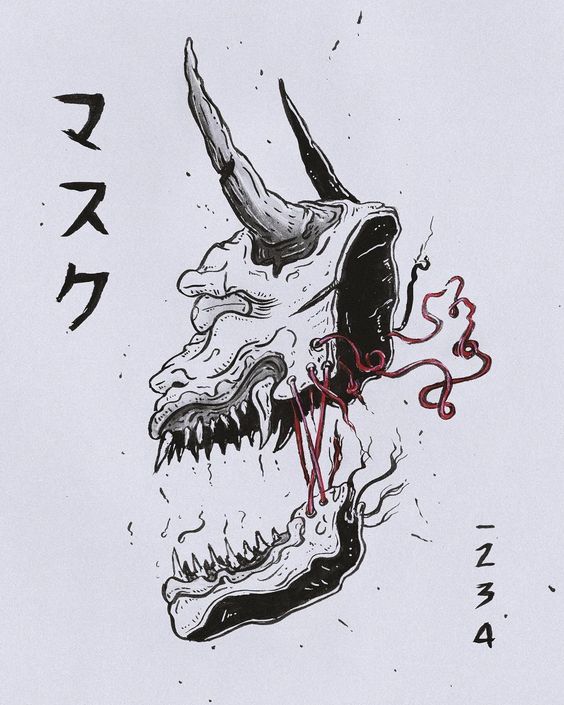 マスク
1234